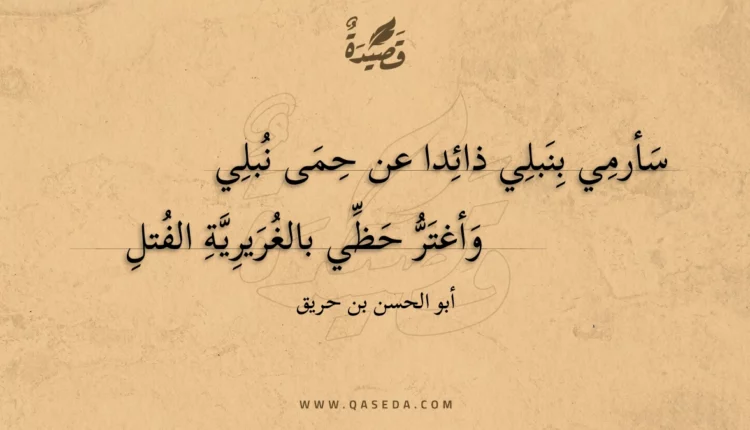 قَصِيدَةٌ
سَأرمِي بِنَبلِي ذائِدا عن حِمَى نُبلِي
وَأغتَرُّ حَظِّي بالغُرَيرِيَّةِ الفُتلِ
أبو الحسن بن حريق
WWW.QASEDA.COM